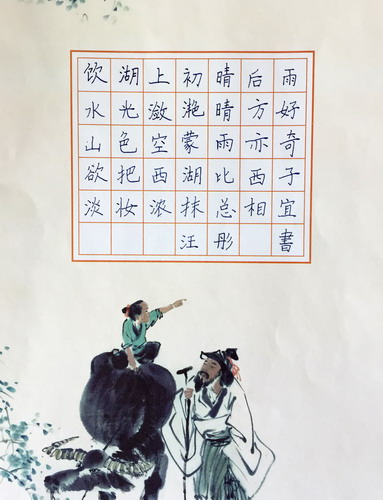 饮湖上初晴后雨
水光潋滟晴方好
山色空蒙雨亦奇
欲把西湖比西子
淡妆浓抹总相宜
汪彤 書